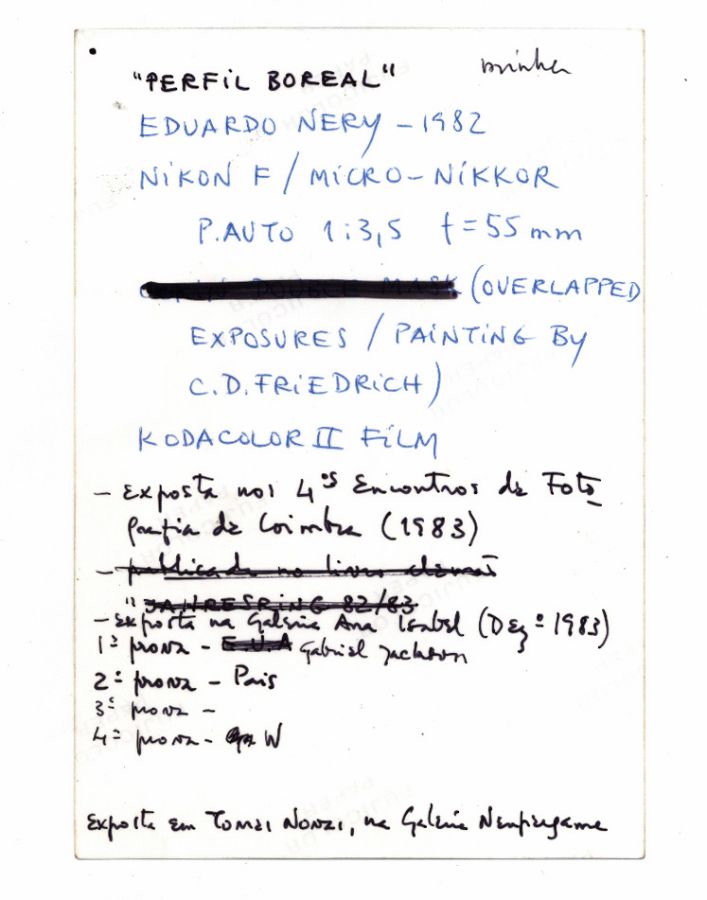 "PERFIL BOREAL" minha
EDUARDO NERY – 1982
NIKON F / MICRO-NIKKOR
P.AUTO 1:3,5 f=55 mm
(OVERLAPPED
EXPOSURES / PAINTING BY
C.D.FRIEDRICH)
KODACOLOR II FILM
– Exposta nos 4ºs Encontros de Foto
grafia de Coimbra (1983)
– publicada no livro alemão
"JAHRESRING 82/83
– Exposta na Galeria Ana Isabel (Dezº 1983)
1ª prova – E.U.A Gabriel Jackson
2ª prova – Pais
3ª prova –
4ª prova – W
Exposta em Torres Novas, na Galeria Neupergame